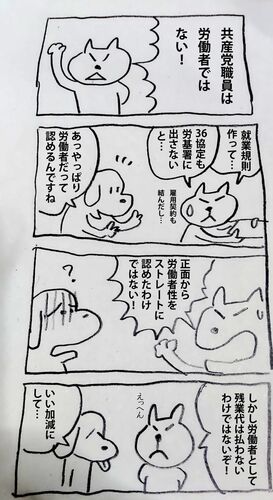 共産党職員は
労働者では
ない!
就業規則
作って…
36協定も
労基署に
出さない
と…
雇用契約も
結んだし…
あっやっぱり
労働者だって
認めるんですね
正面から
労働者性を
ストレートに
認めたわけ
ではない!
?
しかし労働者として
残業代は払わない
わけではないぞ!
えっへん
いい加減に
して…